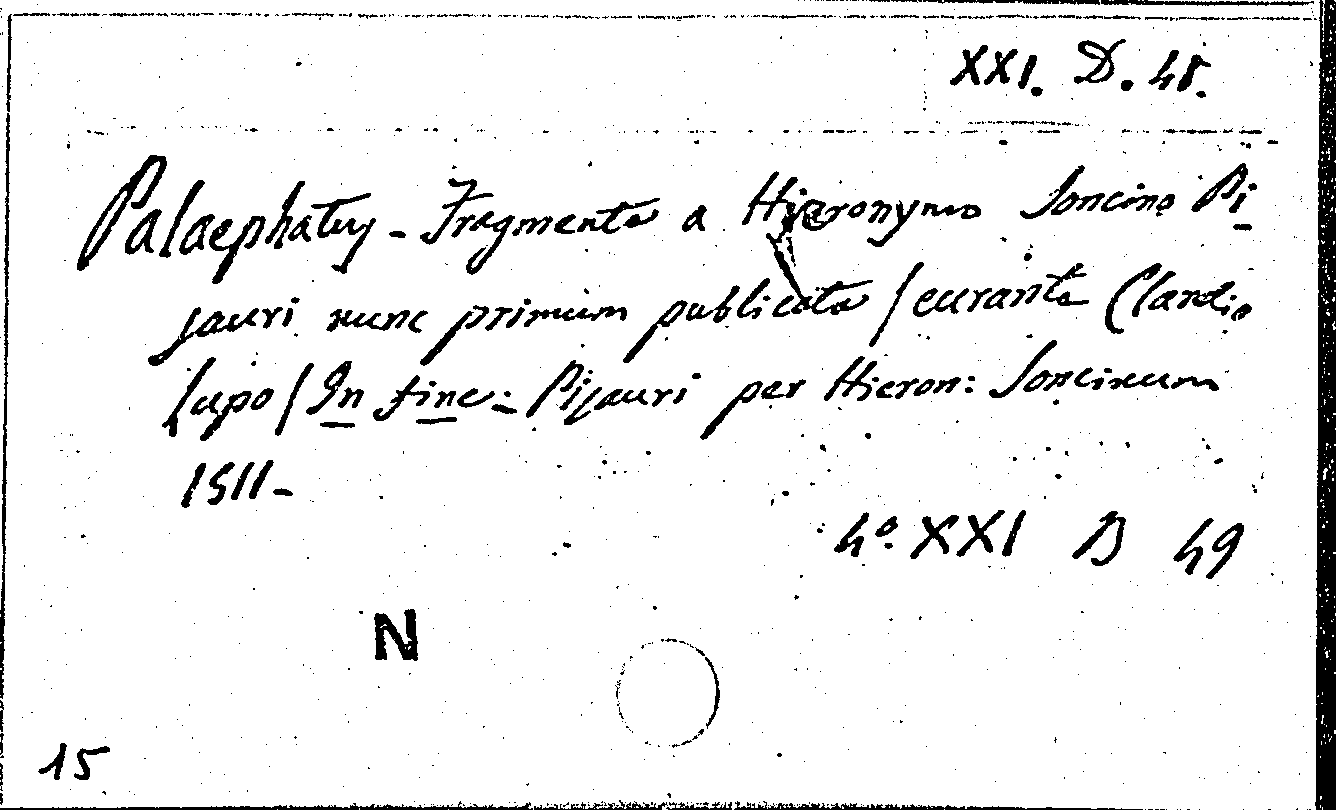 XXI. D. 48.
Palaephatus - Fragmenta a Hieronymo Soncino Pi
sauri nunc primum publicata / curante Claudio
Lupo / In fine: Pisauri per Hieron: Soncinum
1511-
4º. XXI D 49
N
15